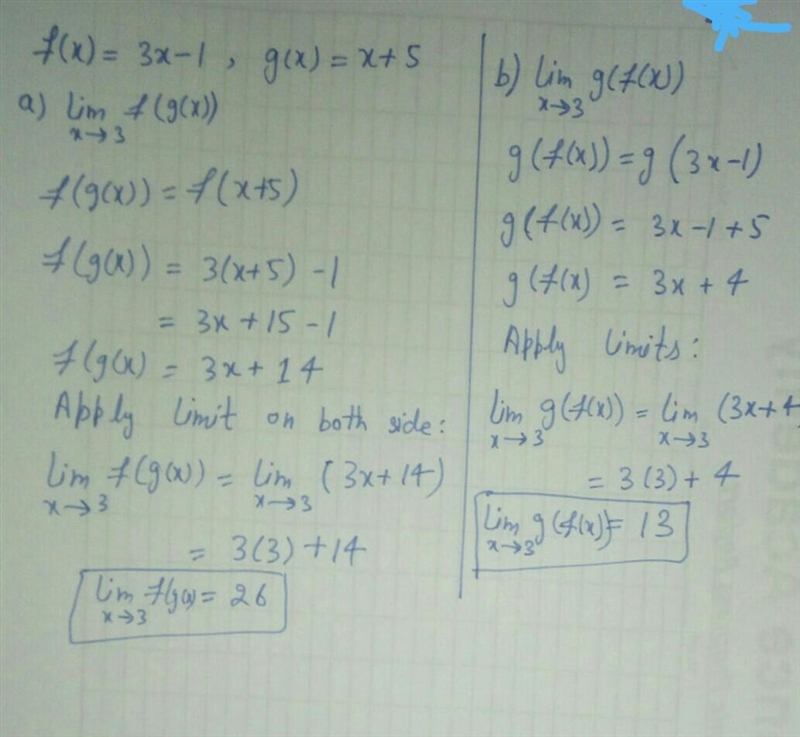 f(x) = 3x-1 , g(x) = x+5
a) lim f(g(x))
x→3
f(g(x)) = f(x+5)
f(g(x)) = 3(x+5) -1
= 3x+15 -1
f(g(x) = 3x+14
Apply limit on both side:
lim f(g(x)) = lim (3x+14)
x→3 x→3
= 3(3)+14
lim f(g(x) = 26
x→3
b) lim g(f(x))
x→3
g(f(x)) = g(3x-1)
g(f(x)) = 3x-1+5
g(f(x) = 3x+4
Apply limits:
lim g(f(x)) = lim (3x+4)
x→3 x→3
= 3(3)+4
lim g(f(x)) = 13
x→3